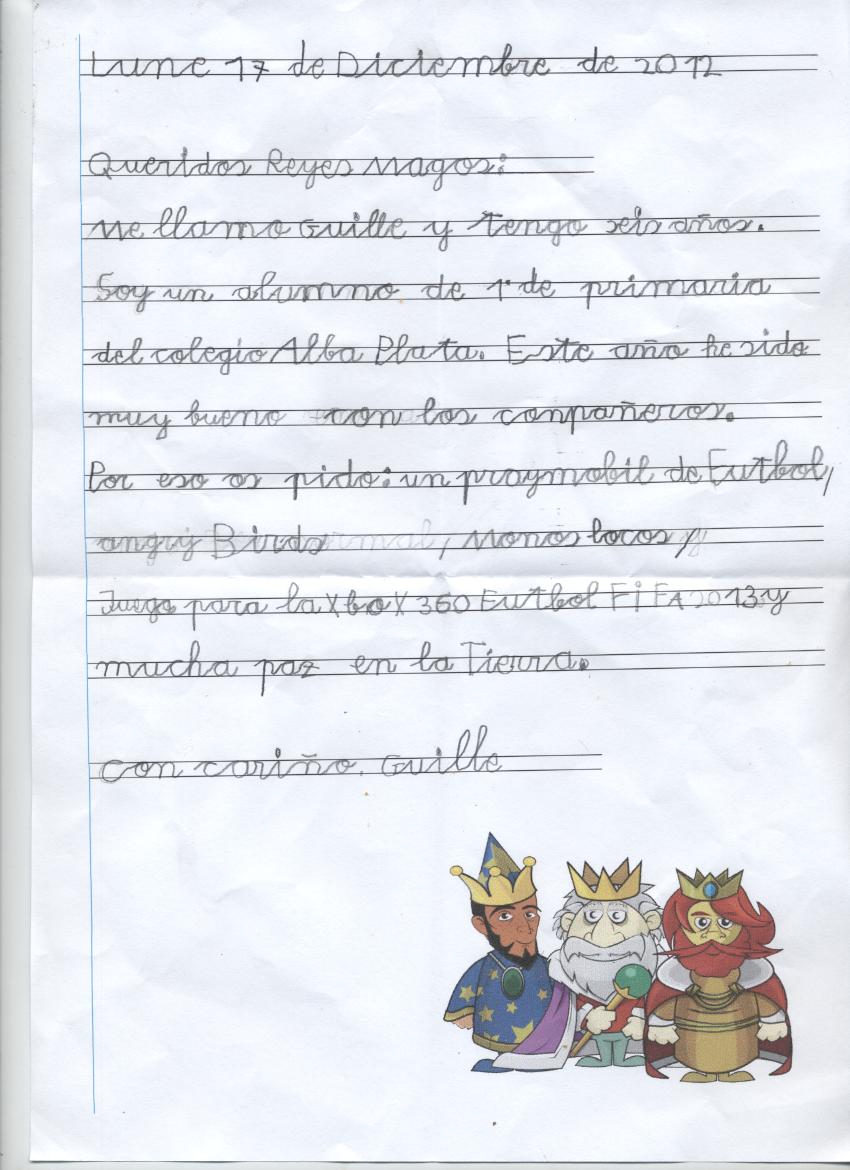 Lune 17 de Diciembre de 2012
Queridos Reyes Magos:
Me llamo Guille y tengo seis años.
Soy un alumno de 1º de primaria
del colegio Alba Plata. Este año he sido
muy bueno con los conpañeros.
Por eso os pido: un praymobil de Futbol,
angry Birds, Monos locos,
Juego para la XboX 360 Futbol FiFA 2013 y
mucha paz en la Tierra.
con cariño. Guille